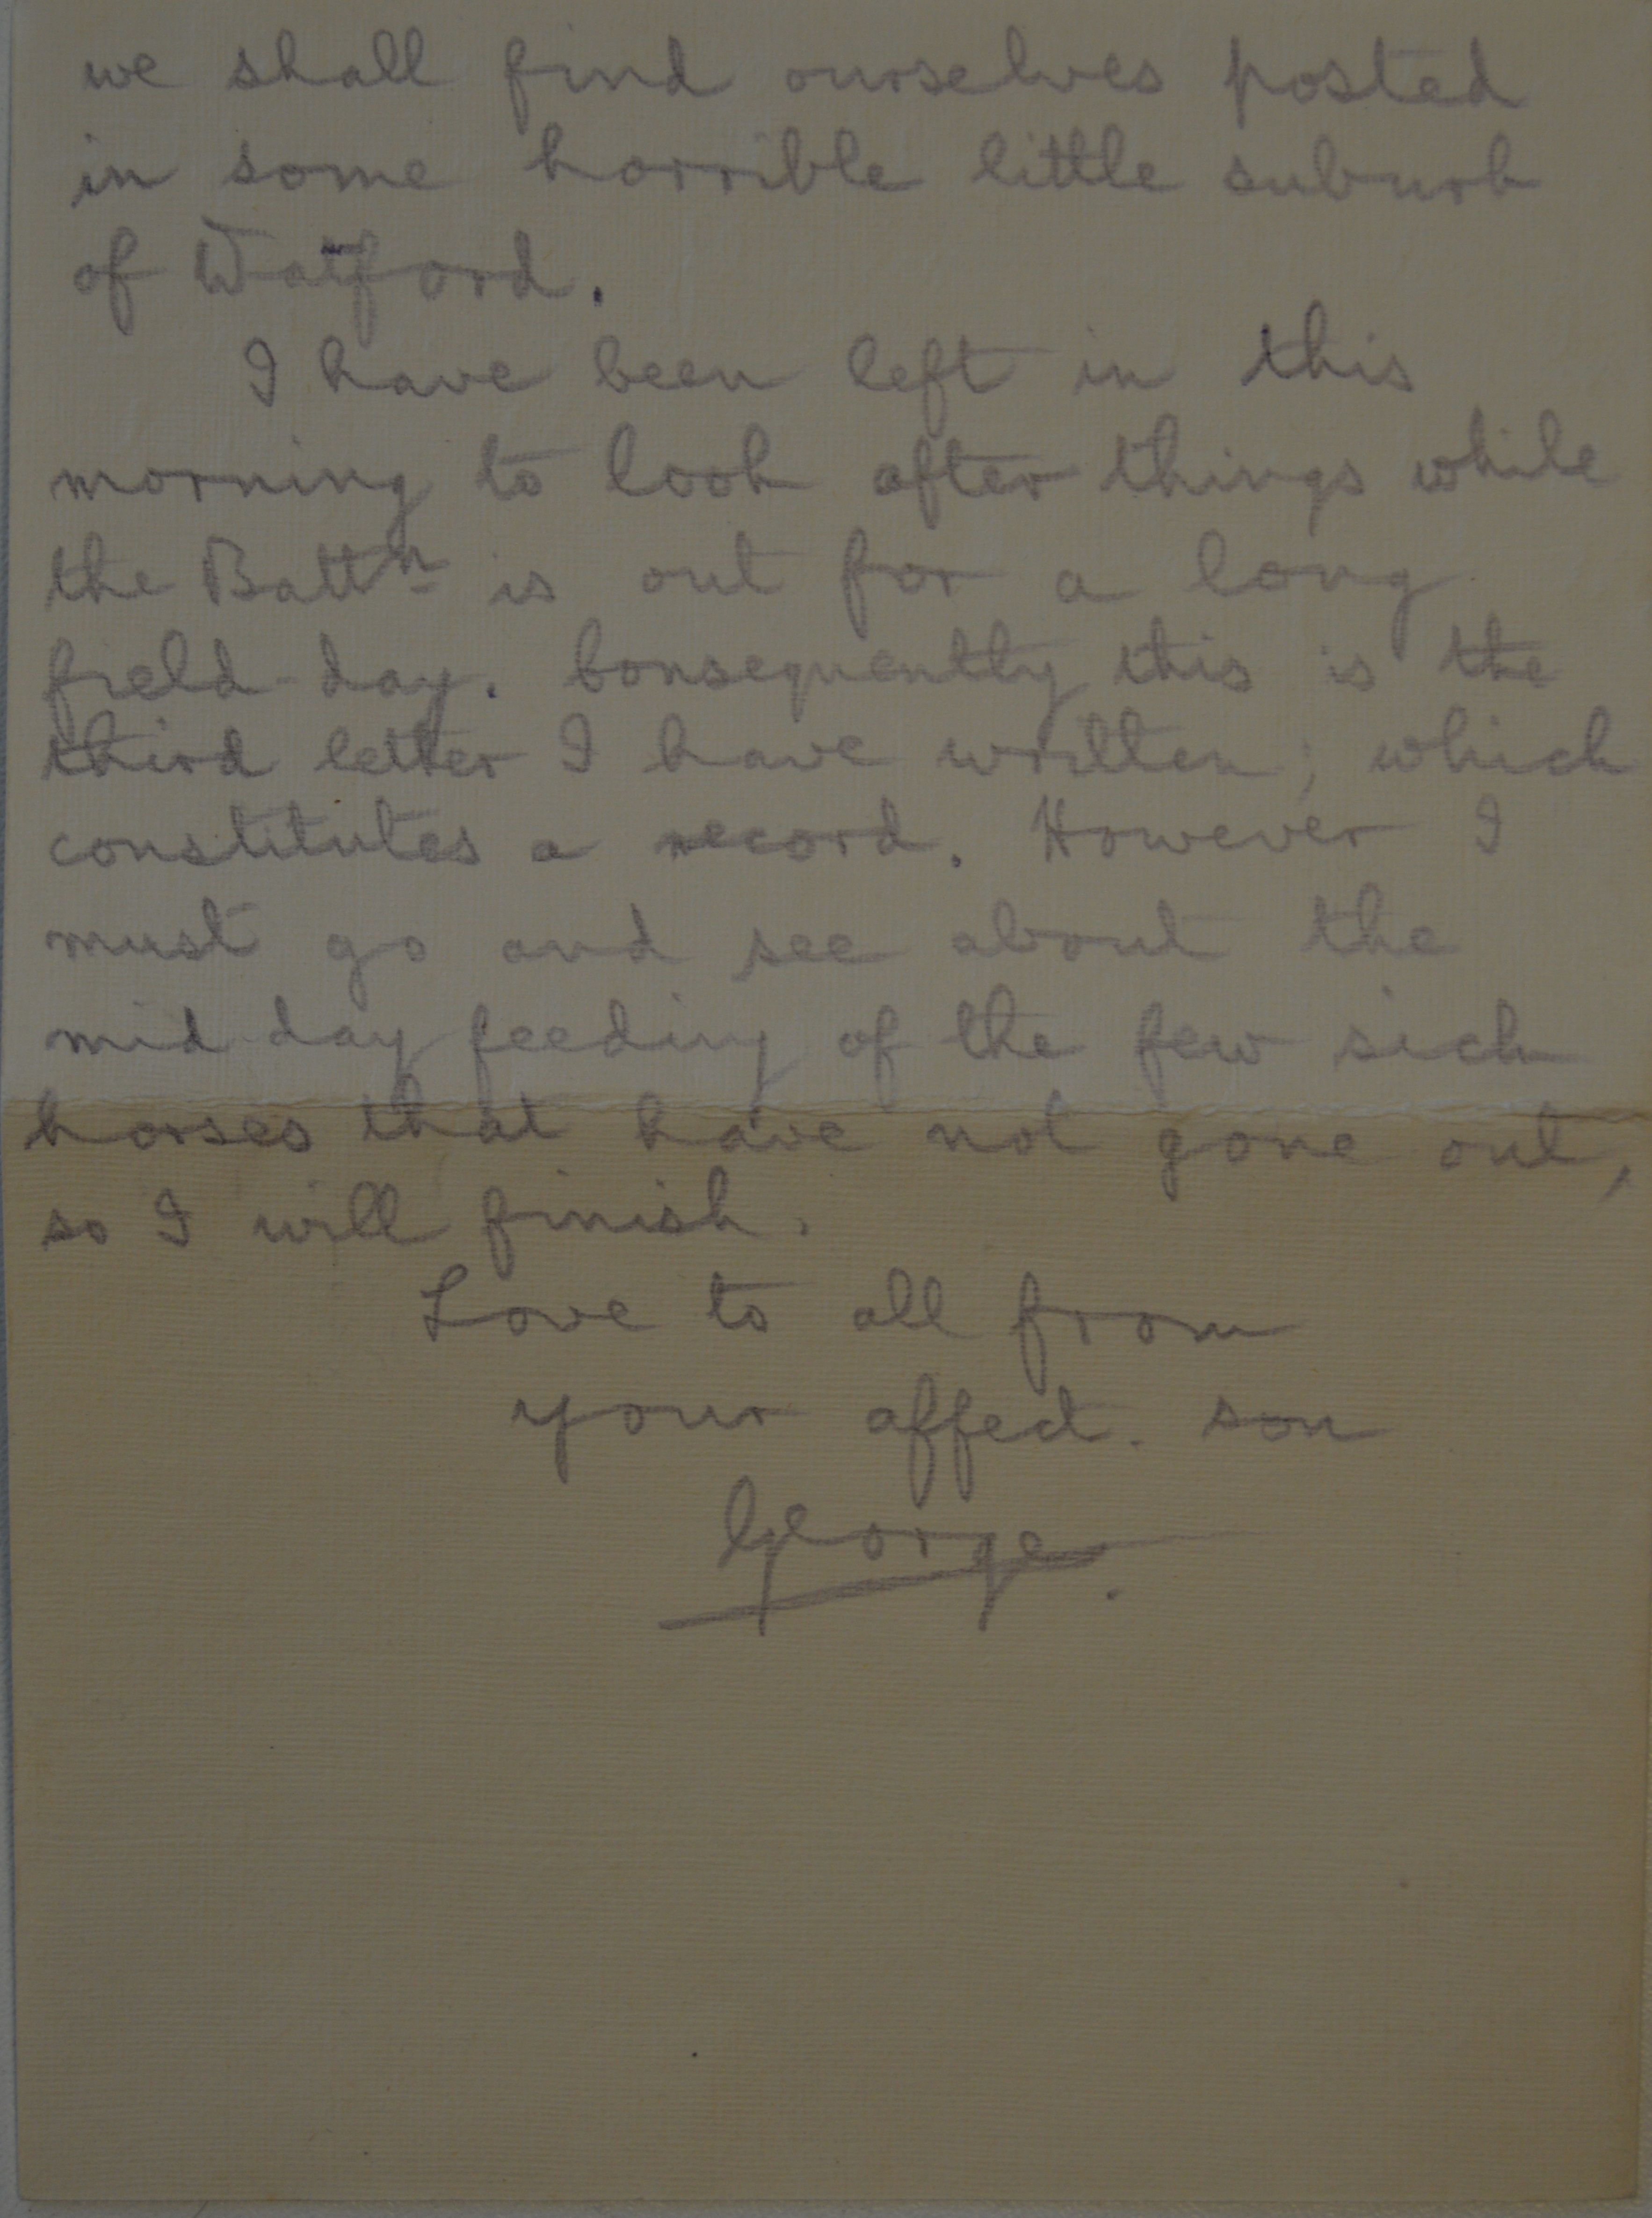 we shall find ourselves posted
in some horrible little suburb
of Watford.
I have been left in this
morning to look after things while
the Battn is out for a long
field-day. Consequently this is the
third letter I have written; which
constitutes a record. However I
must go and see about the
mid-day feeding of the few sick
horses that have not gone out,
so I will finish.
Love to all from
your affect. son
George.